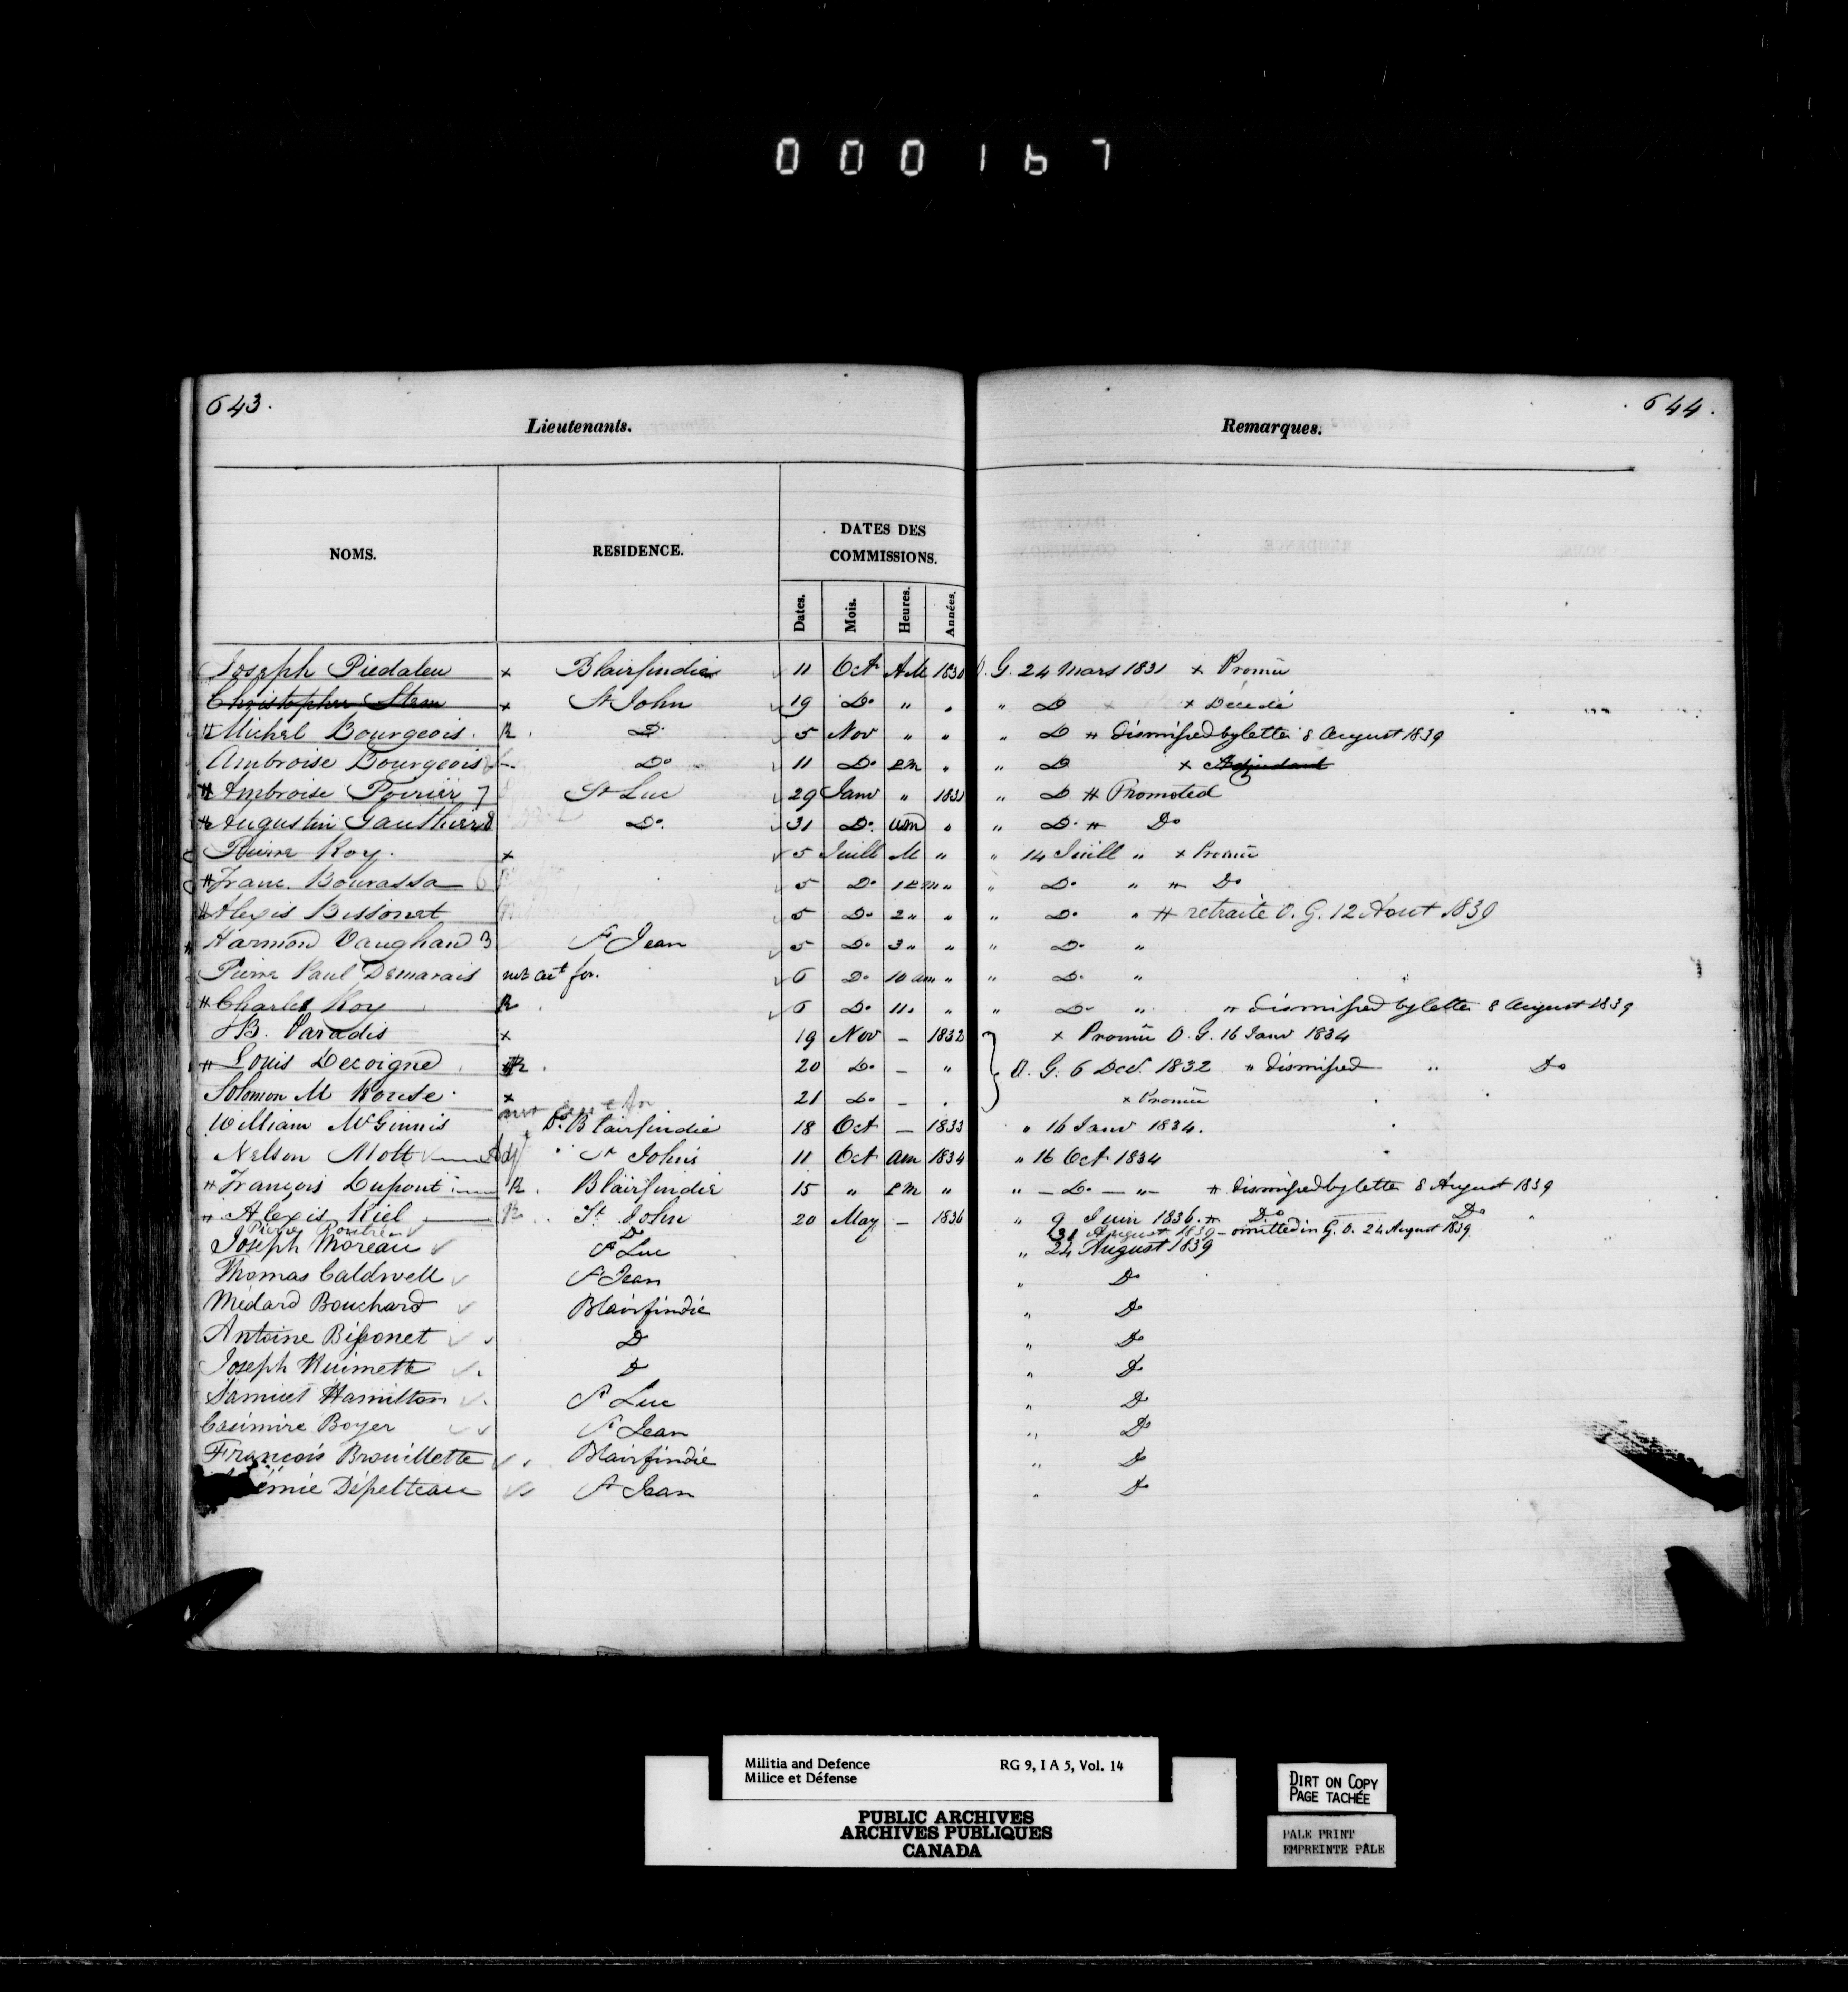 000167
643.
644.
Lieutenants.
Remarques.
NOMS.
RESIDENCE.
DATES DES
COMMISSIONS.
Dates.
Mois.
Heures.
Années.
Joseph Piedaleu x Blairfindie 11 Oct AM 1830 O. G. 24 Mars 1831 x Promu
Christopher x St John 19 Do " " " Do x Décédé
# Michel Bourgeois R. Do 5 Nov " " " Do # Dismissed by letter 8 August 1839
Ambroise Bourgeois Do 11 Do PM " " Do x Adjudant
# Ambroise Poirier 7 St Luc 29 Janv " 1831 " Do # Promoted
# Augustin Gauthier 8 Do. 31 Do. am " " Do. # Do
Pierre Roy. x 5 Juill M " " 14 Juill " x Promu
# Franc. Bourassa 6 5 Do 1 PM " " Do. " # Do
# Alexis Bissonet 5 Do 2 " " " Do. " # retraité O. G. 12 Aout 1839
# Harmon Vaughan 3 St Jean 5 Do 3 " " " Do. "
Pierre Paul Demarais not act for. 6 Do 10 am " " Do. "
# Charles Roy R. 6 Do 11 " " " Do. " # Dismissed by letter 8 August 1839
JB. Paradis x 19 Nov - 1832 x Promu O. G. 16 Janv 1834
# Louis Decoigne R. 20 Do - " O. G. 6 Decr. 1832 " Dismissed " Do
Solomon M Rouse. x 21 Do - " x Promu
William McGinnis Do. Blairfindie 18 Oct - 1833 " 16 Janv 1834.
Nelson Mott Adjt St Johns 11 Oct am 1834 " 16 Oct 1834
# François Dupont R. Blairfindie 15 " PM " " - Do. - " - # Dismissed by letter 8 August 1839
# Alexis Riel R. St John 20 May - 1836 " 9 Juin 1836. # Do Do "
Pierre Do 31 August 1839 - omitted in G. O. 24 August 1839
Joseph Moreau St Luc " 24 August 1839
Thomas Caldwell St Jean " Do
Médard Bouchard Blairfindie " Do
Antoine Bissonet Do " Do
Joseph Ouimette Do " Do
Samuel Hamilton St Luc " Do
Casimire Boyer St Jean " Do
François Brouillette Blairfindie " Do
émie Dépelteau St Jean " Do
Militia and Defence RG 9, I A 5, Vol. 14
Milice et Défense
PUBLIC ARCHIVES
ARCHIVES PUBLIQUES
CANADA
DIRT ON COPY
PAGE TACHÉE
PALE PRINT
EMPREINTE PÂLE